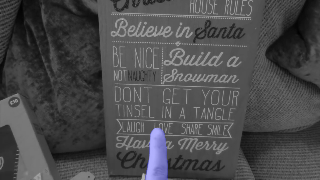 HOUSE RULES
Believe in Santa
BE NICE
NOT NAUGHTY
Build a
Snowman
DON'T GET YOUR
TINSEL IN A TANGLE
LAUGH LOVE SHARE SMILE
Have a Merry
Christmas